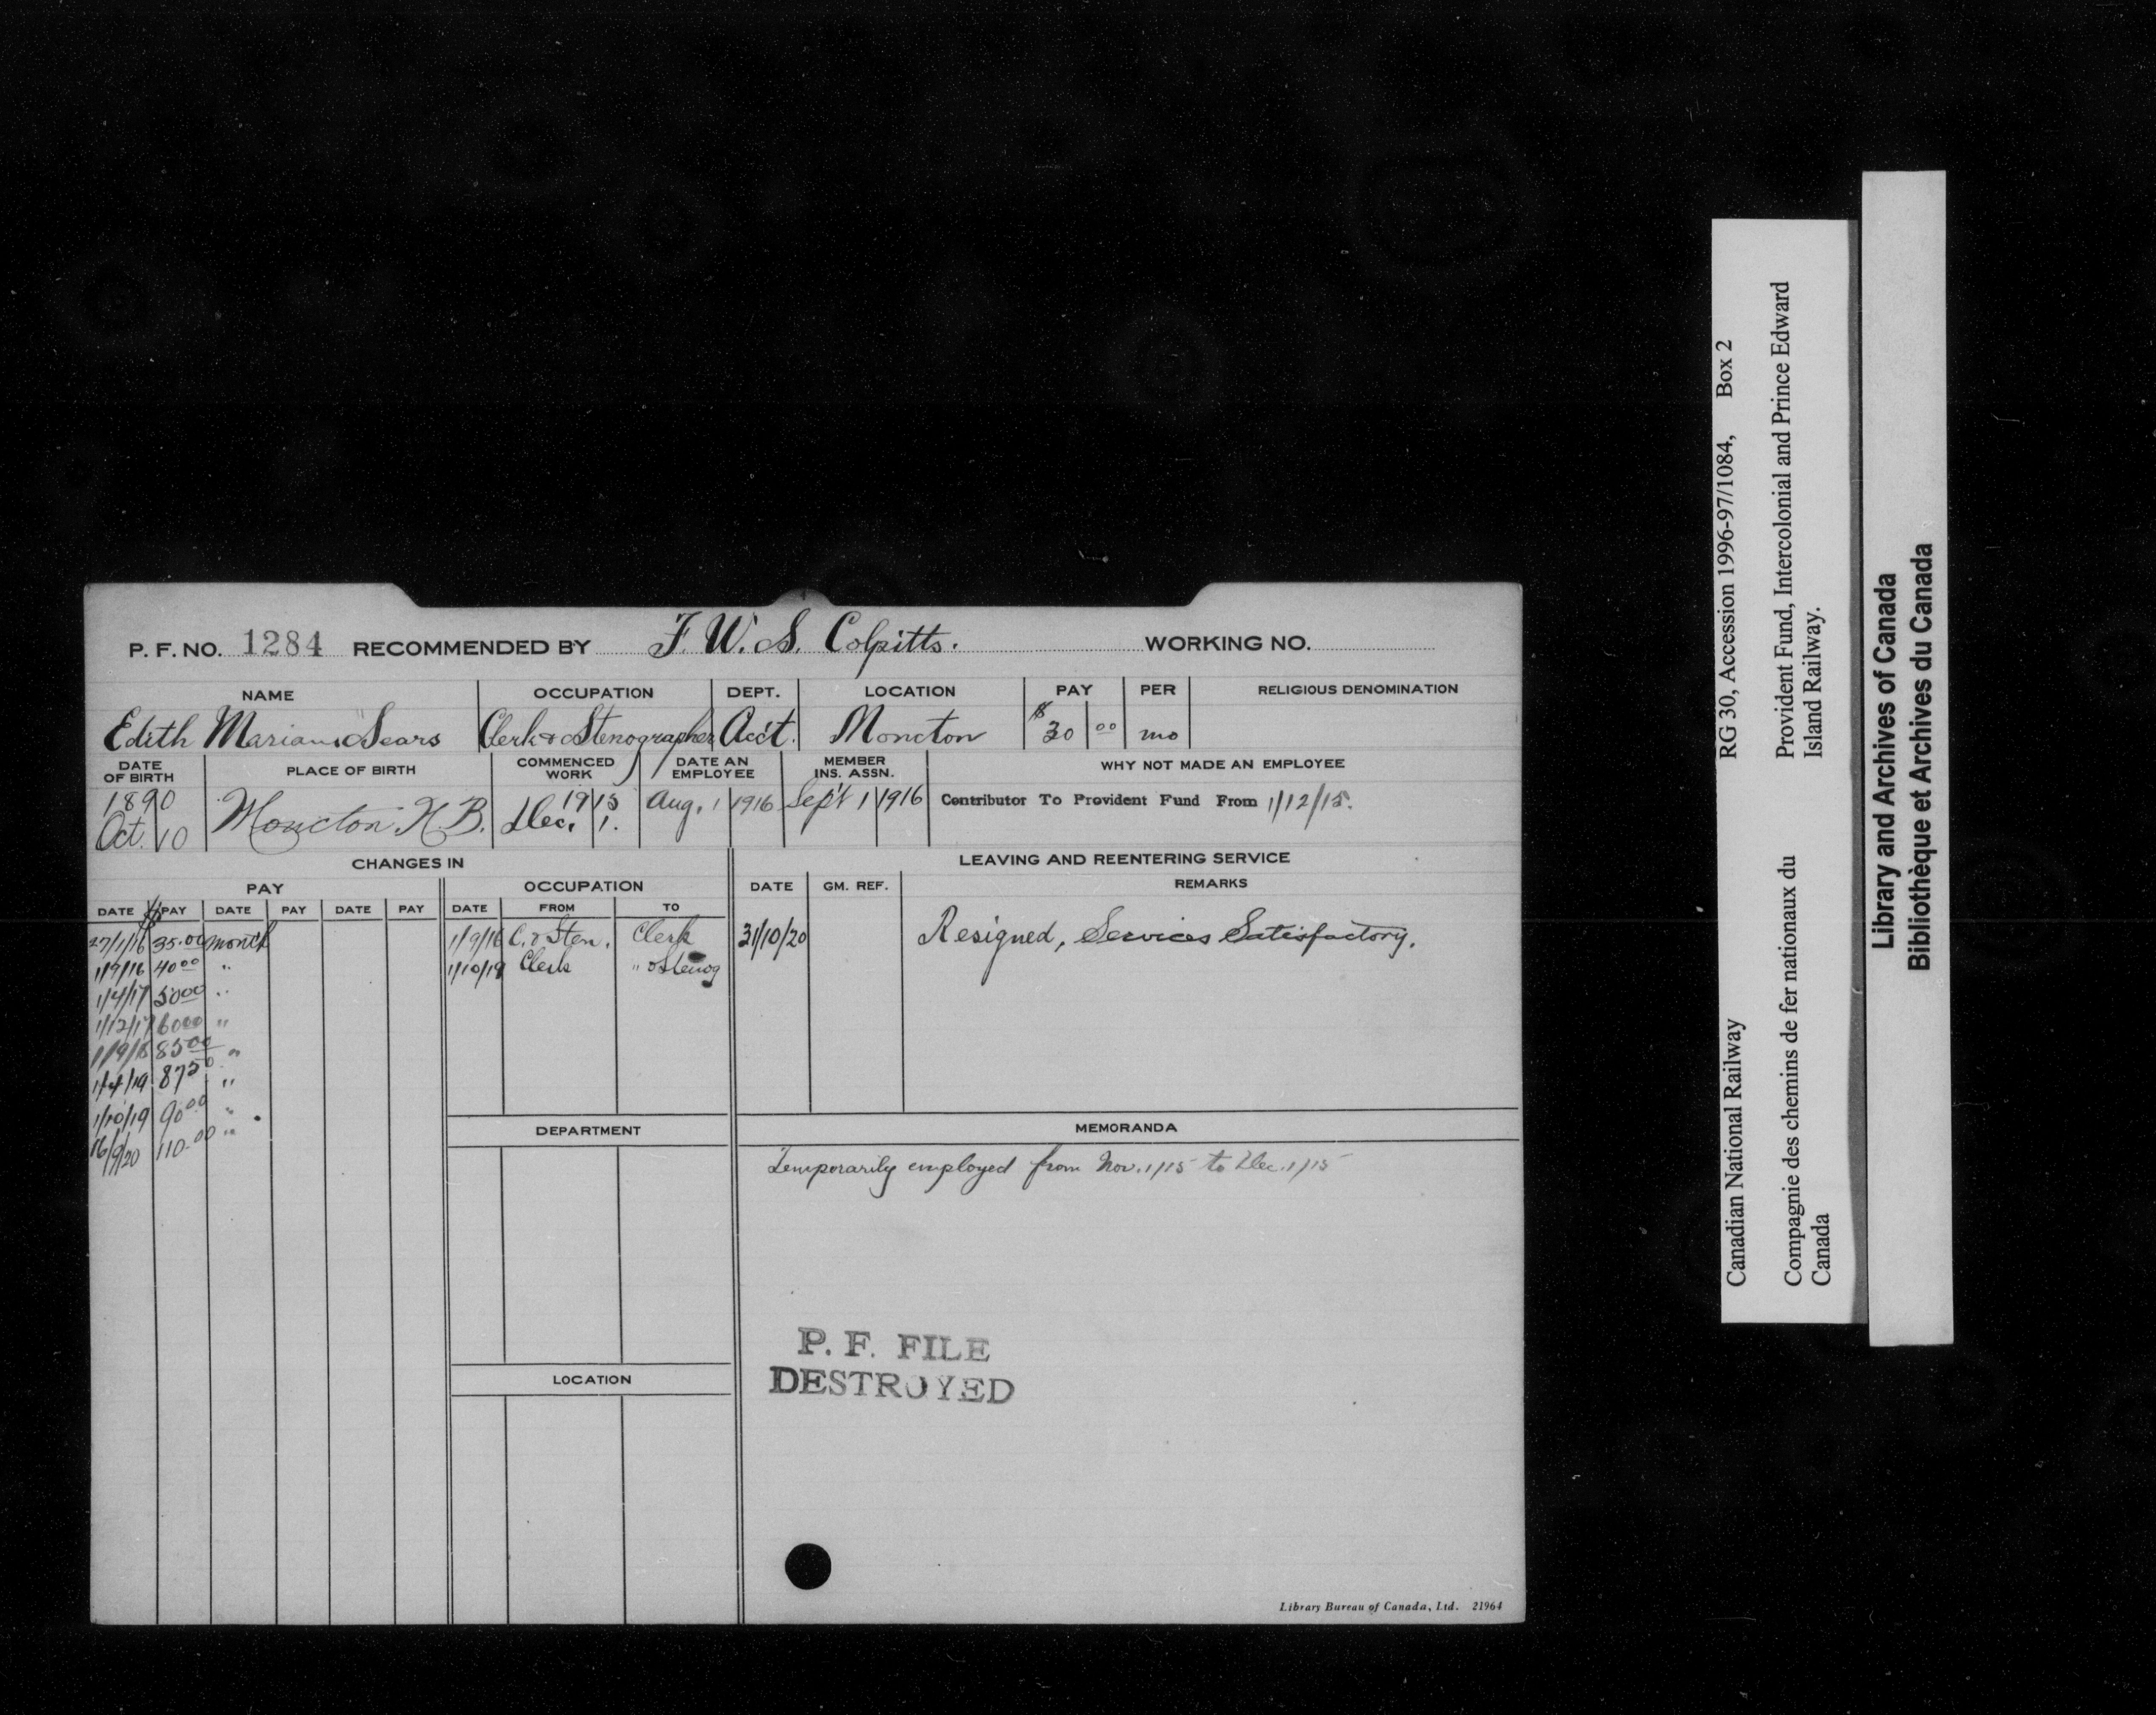 P. F. NO. 1284 RECOMMENDED BY F. W. S. Colpitts. WORKING NO.
NAME OCCUPATION DEPT. LOCATION PAY PER RELIGIOUS DENOMINATION
Edith Marian Sears Clerk & Stenographer Acc't. Moncton $30 00 mo
DATE OF BIRTH PLACE OF BIRTH COMMENCED WORK DATE AN EMPLOYEE MEMBER INS. ASSN. WHY NOT MADE AN EMPLOYEE
1890 Oct. 10 Moncton N.B. 1915 Dec. 1. Aug. 1 1916 Sep't 1 1916 Contributor To Provident Fund From 1/12/15.
CHANGES IN LEAVING AND REENTERING SERVICE
PAY OCCUPATION DATE GM. REF. REMARKS
DATE $ PAY DATE PAY DATE PAY DATE FROM TO
27/1/16 35.00 month 1/9/16 C. & Sten. Clerk 31/10/20 Resigned, Services Satisfactory.
1/9/16 40 00 " 1/10/19 Clerk " & Stenog
1/4/17 50 00 "
1/12/17 60 00 "
1/9/18 85 00 "
1/4/19 87 50 "
1/10/19 90 00 "
16/9/20 110.00 "
DEPARTMENT MEMORANDA
Temporarily employed from Nov. 1/15 to Dec. 1/15
P. F. FILE
DESTROYED
LOCATION
Library Bureau of Canada, Ltd. 21964
Canadian National Railway RG 30, Accession 1996-97/1084, Box 2
Compagnie des chemins de fer nationaux du Provident Fund, Intercolonial and Prince Edward
Canada Island Railway.
Library and Archives of Canada
Bibliothèque et Archives du Canada